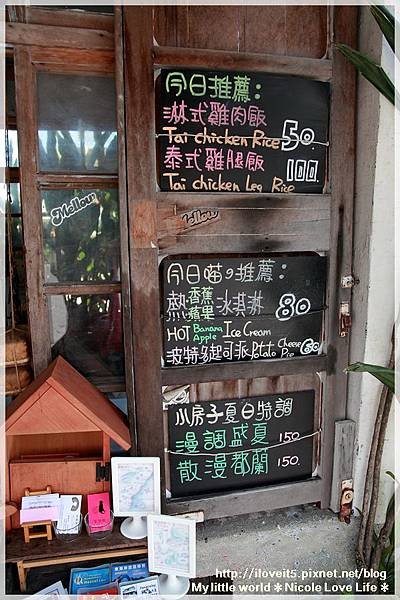 今日推薦:
淋式雞肉飯
Tai chicken Rice 50.
泰式雞腿飯 100
Tai chicken Leg Rice
Mellow
Mellow
今日喵，推薦:
熱香蕉蘋果冰淇淋 80
HOT Banana Apple Ice Cream
波特多起可派Potato Cheese Pie 60
小房子夏日特調
漫調盛夏 150
散漫都蘭 150.
http://iloveit5.pixnet.net/blog
My little world＊Nicole Love Life＊